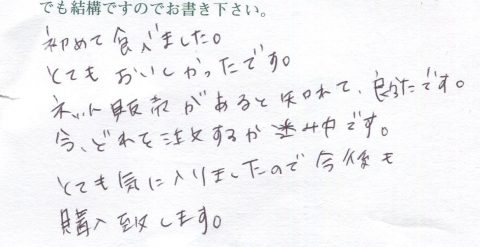 でも結構ですのでお書き下さい。
初めて食べました。
とてもおいしかったです。
ネット販売があると知れて、良かたです。
今、どれを注文するか迷い中です。
とても気に入りましたので今後も
購入致します。